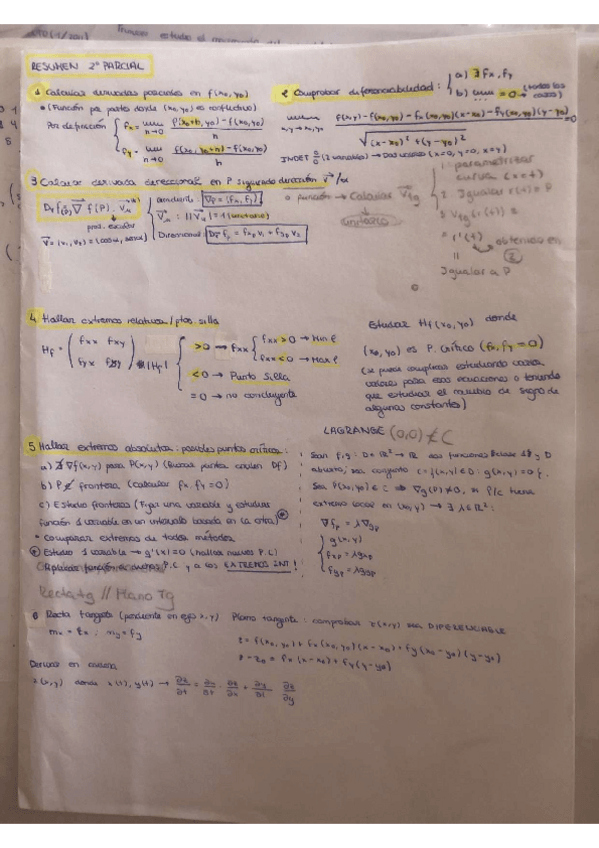 RESUMEN 2º PARCIAL
1 Calcular derivadas parciales en f(x0,y0)
• (Función por partes donde (x0,y0) es conflictivo)
Por definición
fx = lim h→0 f(x0+h, y0) - f(x0,y0) / h
fy = lim h→0 f(x0, y0+h) - f(x0,y0) / h
2 Comprobar diferenciabilidad:
a) ∃ fx, fy
b) lim = 0 → (todos los casos)
lim x,y→x0,y0 f(x,y) - f(x0,y0) - fx(x0,y0)(x-x0) - fy(x0,y0)(y-y0) / √(x-x0)² + (y-y0)² = 0
INDET 0/0 (2 variables) → (x=0, y=0, x=y)
3 Calcular derivada direccional en P siguiendo dirección v
prod. escalar
v = (v1, v2) = (cosα, senα)
Gradiente: ∇f = (fx, fy)
|| = 1 (unitario)
Direccional: fp = fxp v1 + fyp v2
o función → Calcular Vtg
unitario
1 parametrizar curva (x=t)
2 Igualar r(t) = P
3 Vtg (r(t)) =
= r'(t)
obtenido en 2
Igualar a P
4 Hallar extremos relativos / ptos silla
Hf = ( fxx fxy
fyx fyy )
>0 → fxx
fxx > 0 → Min
fxx < 0 → Max
<0 → Punto Silla
=0 → no concluyente
Estudiar Hf(x0,y0) donde
(x0,y0) es P. Crítico (fx, fy = 0)
(se puede complicar estudiando varios
valores para esas ecuaciones o teniendo
que estudiar el cambio de signo de
algunas constantes)
5 Hallar extremos absolutos: posibles puntos críticos:
a) ∄ ∇f(x,y) para P(x,y)
b) P ∉ frontera (calcular fx, fy = 0)
c) Estudio fronteras (Fijar una variable y estudiar
función 1 variable en un intervalo basado en la otra) *
• comparar extremos de todos métodos
* Estudio 1 variable → g'(x) = 0 (hallar nuevos P.C)
EXTREMOS INT!
LAGRANGE (0,0) ∉ C
Sean f,g: D ⊂ ℝ² → ℝ dos funciones de clase 1 y D
abierto, sea conjunto C = {(x,y) ∈ D : g(x,y) = 0}.
Sea P(x0,y0) ∈ C ⇒ ∇g(P) ≠ 0, si f/C tiene
extremo local en (x0,y0) → ∃ λ ∈ ℝ:
∇fp = λ∇gp
g(x,y)
fxp = λgxp
fyp = λgyp
Recta tg // Plano Tg
6 Recta tangente (pendiente en ejes x,y)
mx = fx ; my = fy
Plano tangente: comprobar z(x,y) sea DIFERENCIABLE
z = f(x0,y0) + fx(x0,y0)(x-x0) + fy(x0-y0)(y-y0)
z - z0 = fx(x-x0) + fy(y-y0)
Derivar en cadena
z(x,y) donde x(t), y(t) →